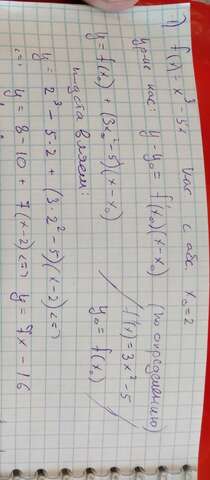 1) f(x) = x³ - 5x с абс. x₀ = 2
ур-ие кас: y - y₀ = f'(x₀)(x - x₀) (по определению)
y = f(x₀) + (3x₀² - 5)(x - x₀) / f'(x) = 3x² - 5
y₀ = f(x₀) /
подставляем:
y = 2³ - 5·2 + (3·2² - 5)(x - 2) <=>
<=> y = 8 - 10 + 7(x - 2) <=> y = 7x - 16